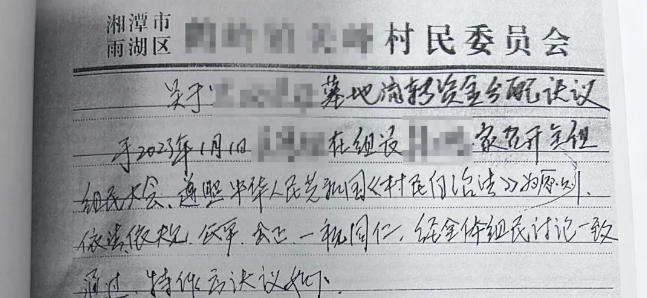 湘潭市
雨湖区 村民委员会
关于 墓地流转资金分配决议
于2023年1月1日 在组长 家召开全组
组民大会、遵照中华人民共和国《村民自治法》为原则、
依法依规、公平、公正、一视同仁、经全体组民讨论一致
通过、特作出决议如下、